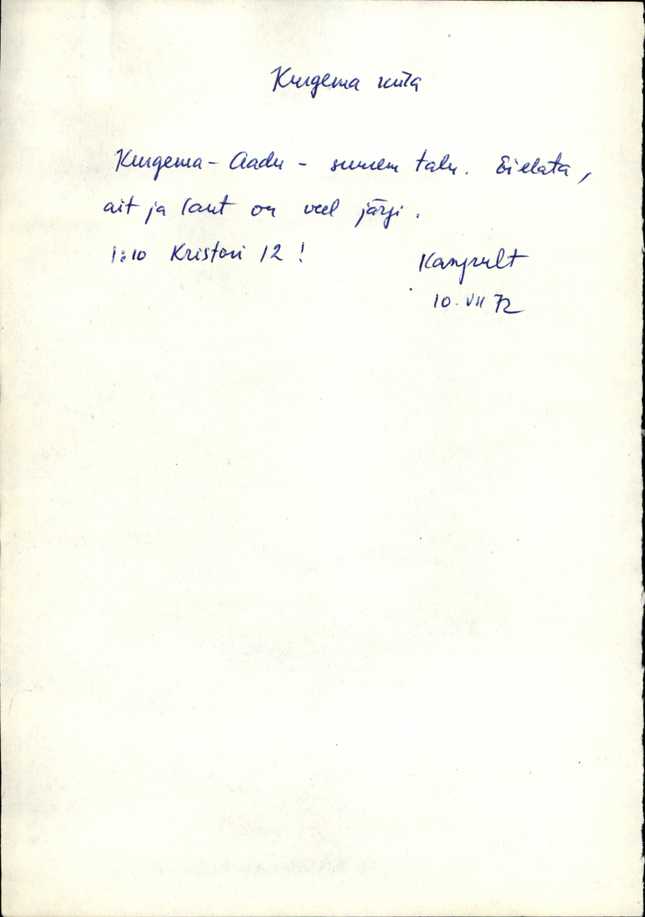 Kurgema küla
Kurgema-Aadu - suurem talu. Ei elata,
ait ja laut on veel järgi.
1:10 Kristovi 12!
Kangrult
10. VII 72